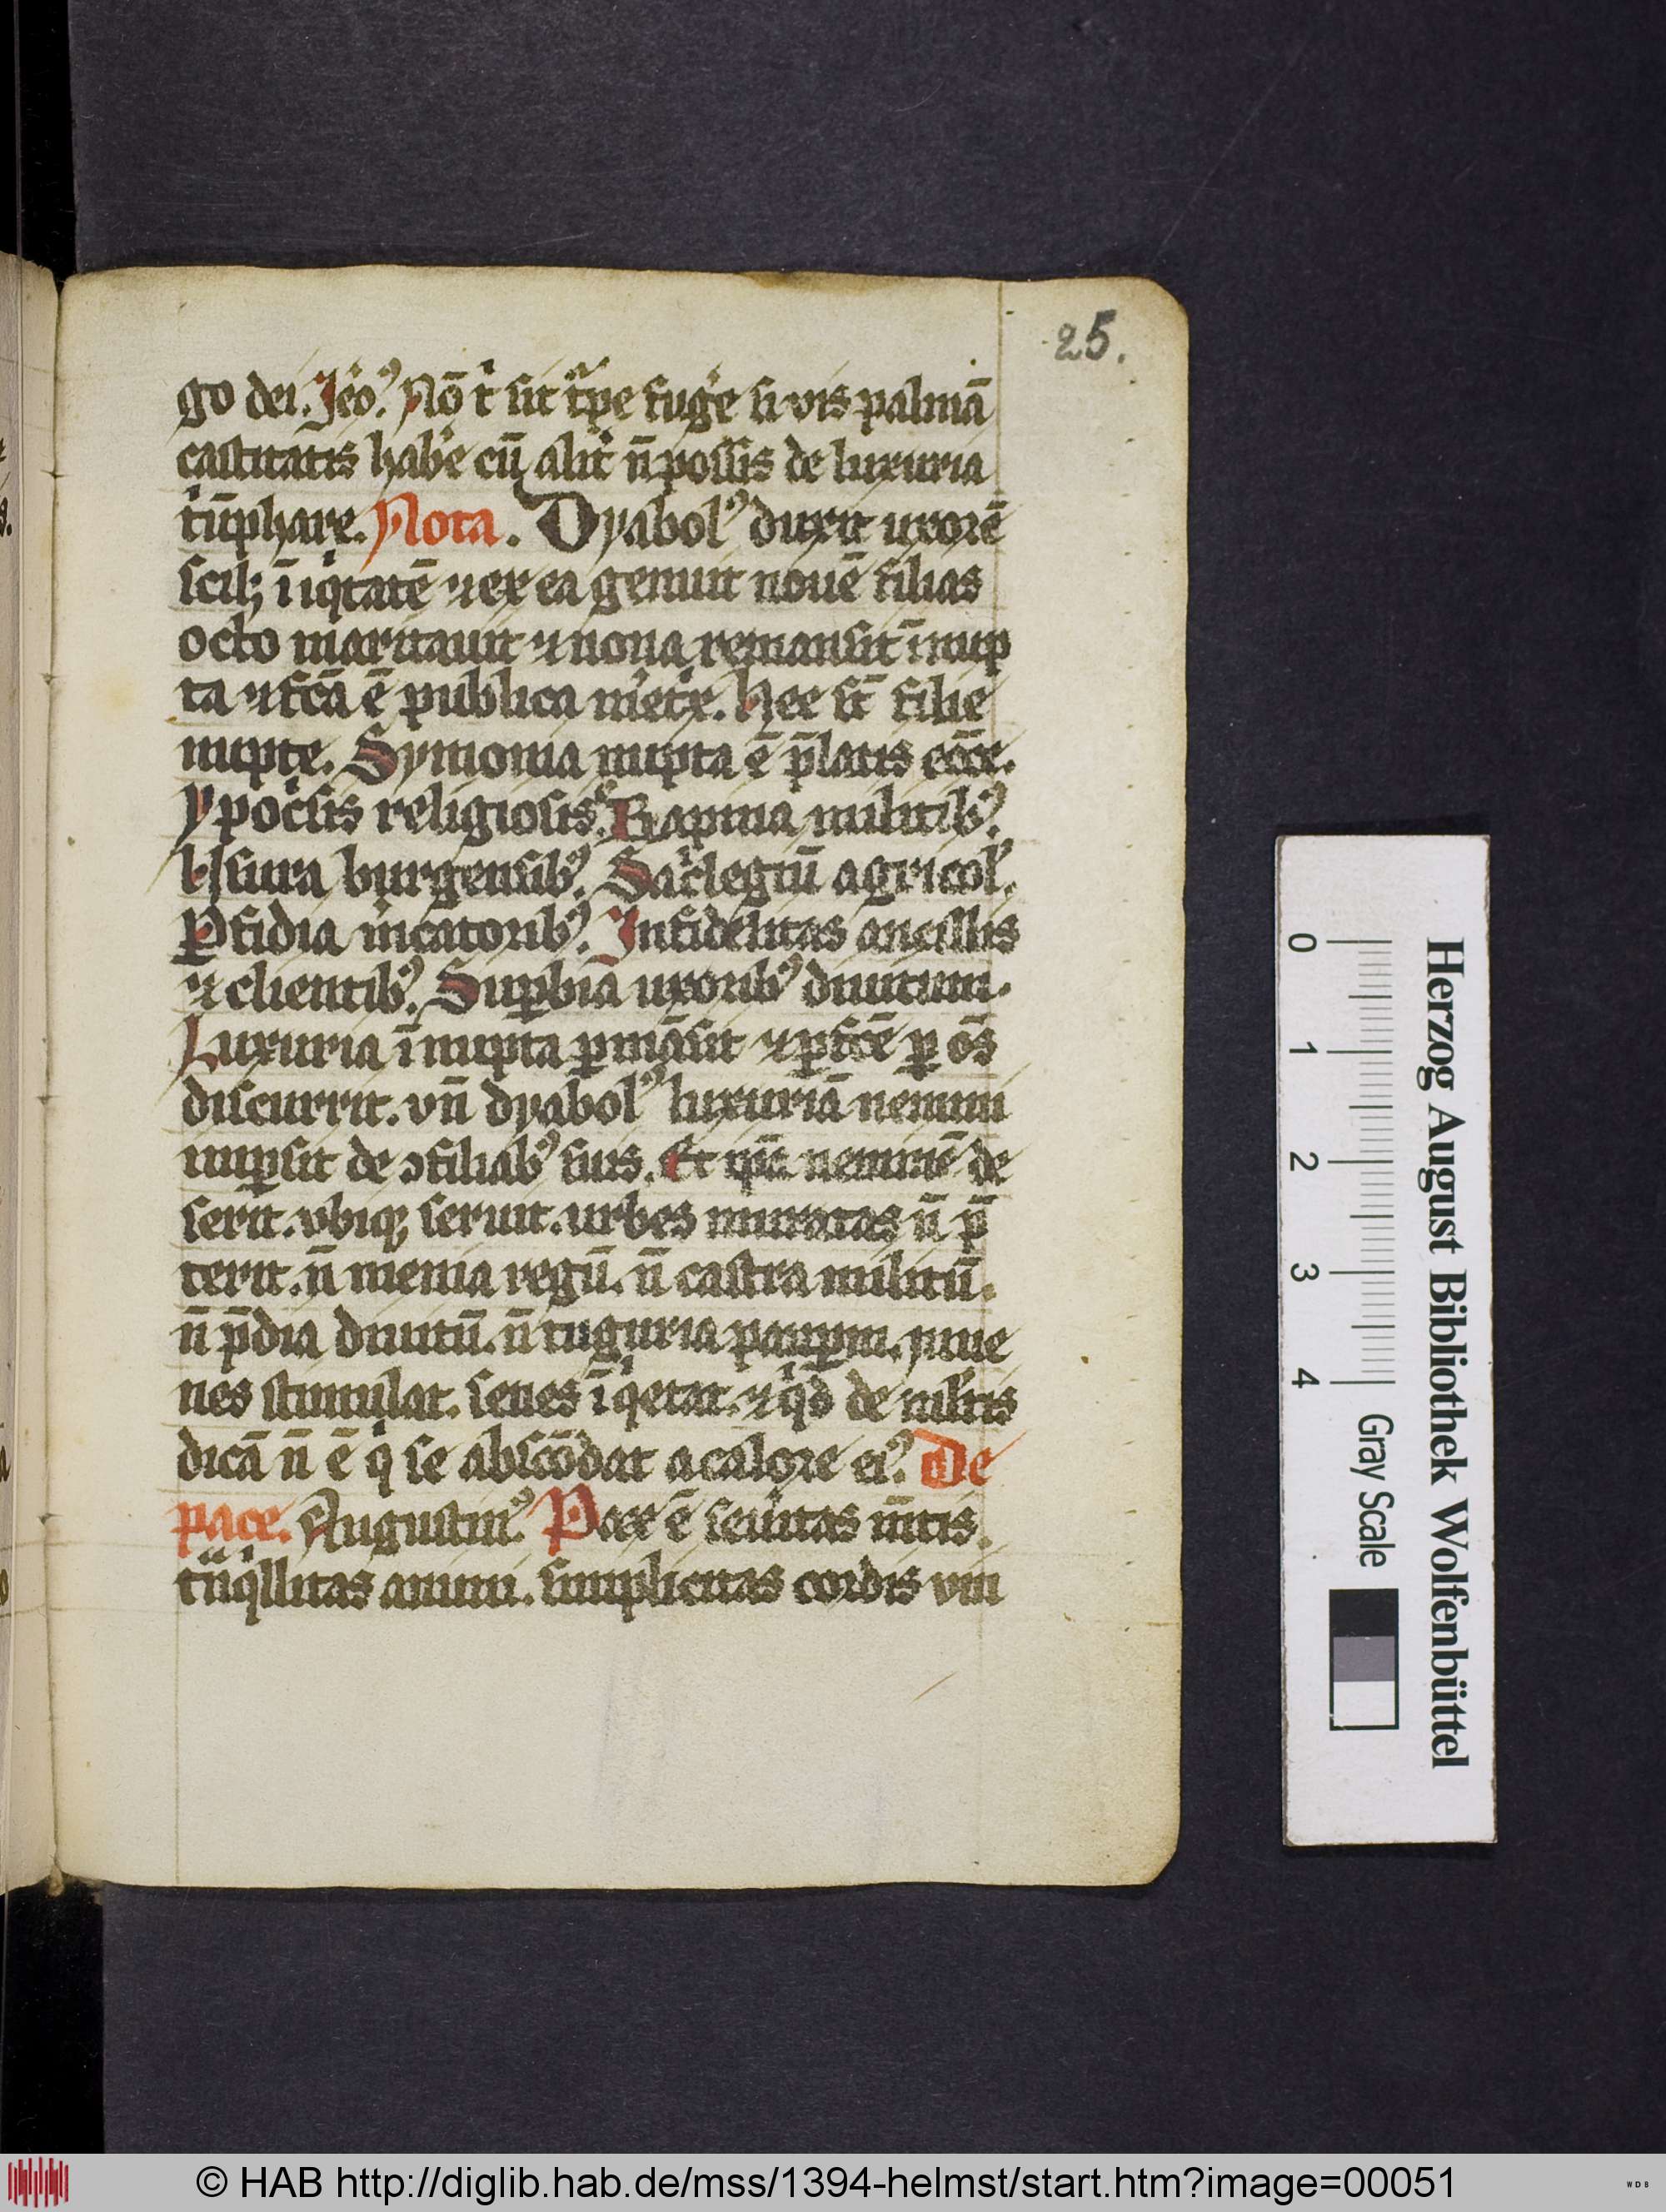 25.
go dei. Jeō⁹. Nō t̾ sit t̾pe fug̾e si vis palmā
castitatis hab̾e cū alit̾ n̄ possis de luxuria
tⁱūphare. Nota. Dyabol⁹ duxit uxorē
scilꝫ īiqⁱtatē ⁊ ex ea genuit nouē filias
octo maritauit ⁊ nona remansit īnup
ta ⁊ fcā ē publica m̾etⁱx. Hee st̄ filie
nupte. Symonia nupta ē p̄latis ecc̄e.
ypocⁱsis religiosis. Rapina militib⁹.
Usura burgensib⁹. Sacⁱlegiū agricol̾.
ꝑfidia m̾catorib⁹. Infidelitas ancillis
⁊ clientib⁹. Suꝑbia uxorib⁹ diuitum.
Luxuria īnupta ꝑmāsit ⁊ ꝑ om̄s
discurrit. vn̄ dyabol⁹ luxuriā nemini
nupsit de ↄfiliab⁹ suis. Et neminē de
serit. vbiqꝫ seruit. urbes muratas n̄ p̄
terit. n̄ menia regū. n̄ castra militū.
n̄ p̄dia diuitū. n̄ tuguria pauꝑum. iuue
nes stimulat. senes īqⁱetat. ⁊ qⁱd de
dicā n̄ ē qⁱ se abscōdat a calore ei⁹. De
pace. Augustin⁹. Pax ē se̾nitas m̄tis.
tᵃnqⁱllitas animi. simplicitas cordis vin
Herzog August Bibliothek Wolfenbüttel
0 1 2 3 4 Gray Scale
© HAB http://diglib.hab.de/mss/1394-helmst/start.htm?image=00051
WDB